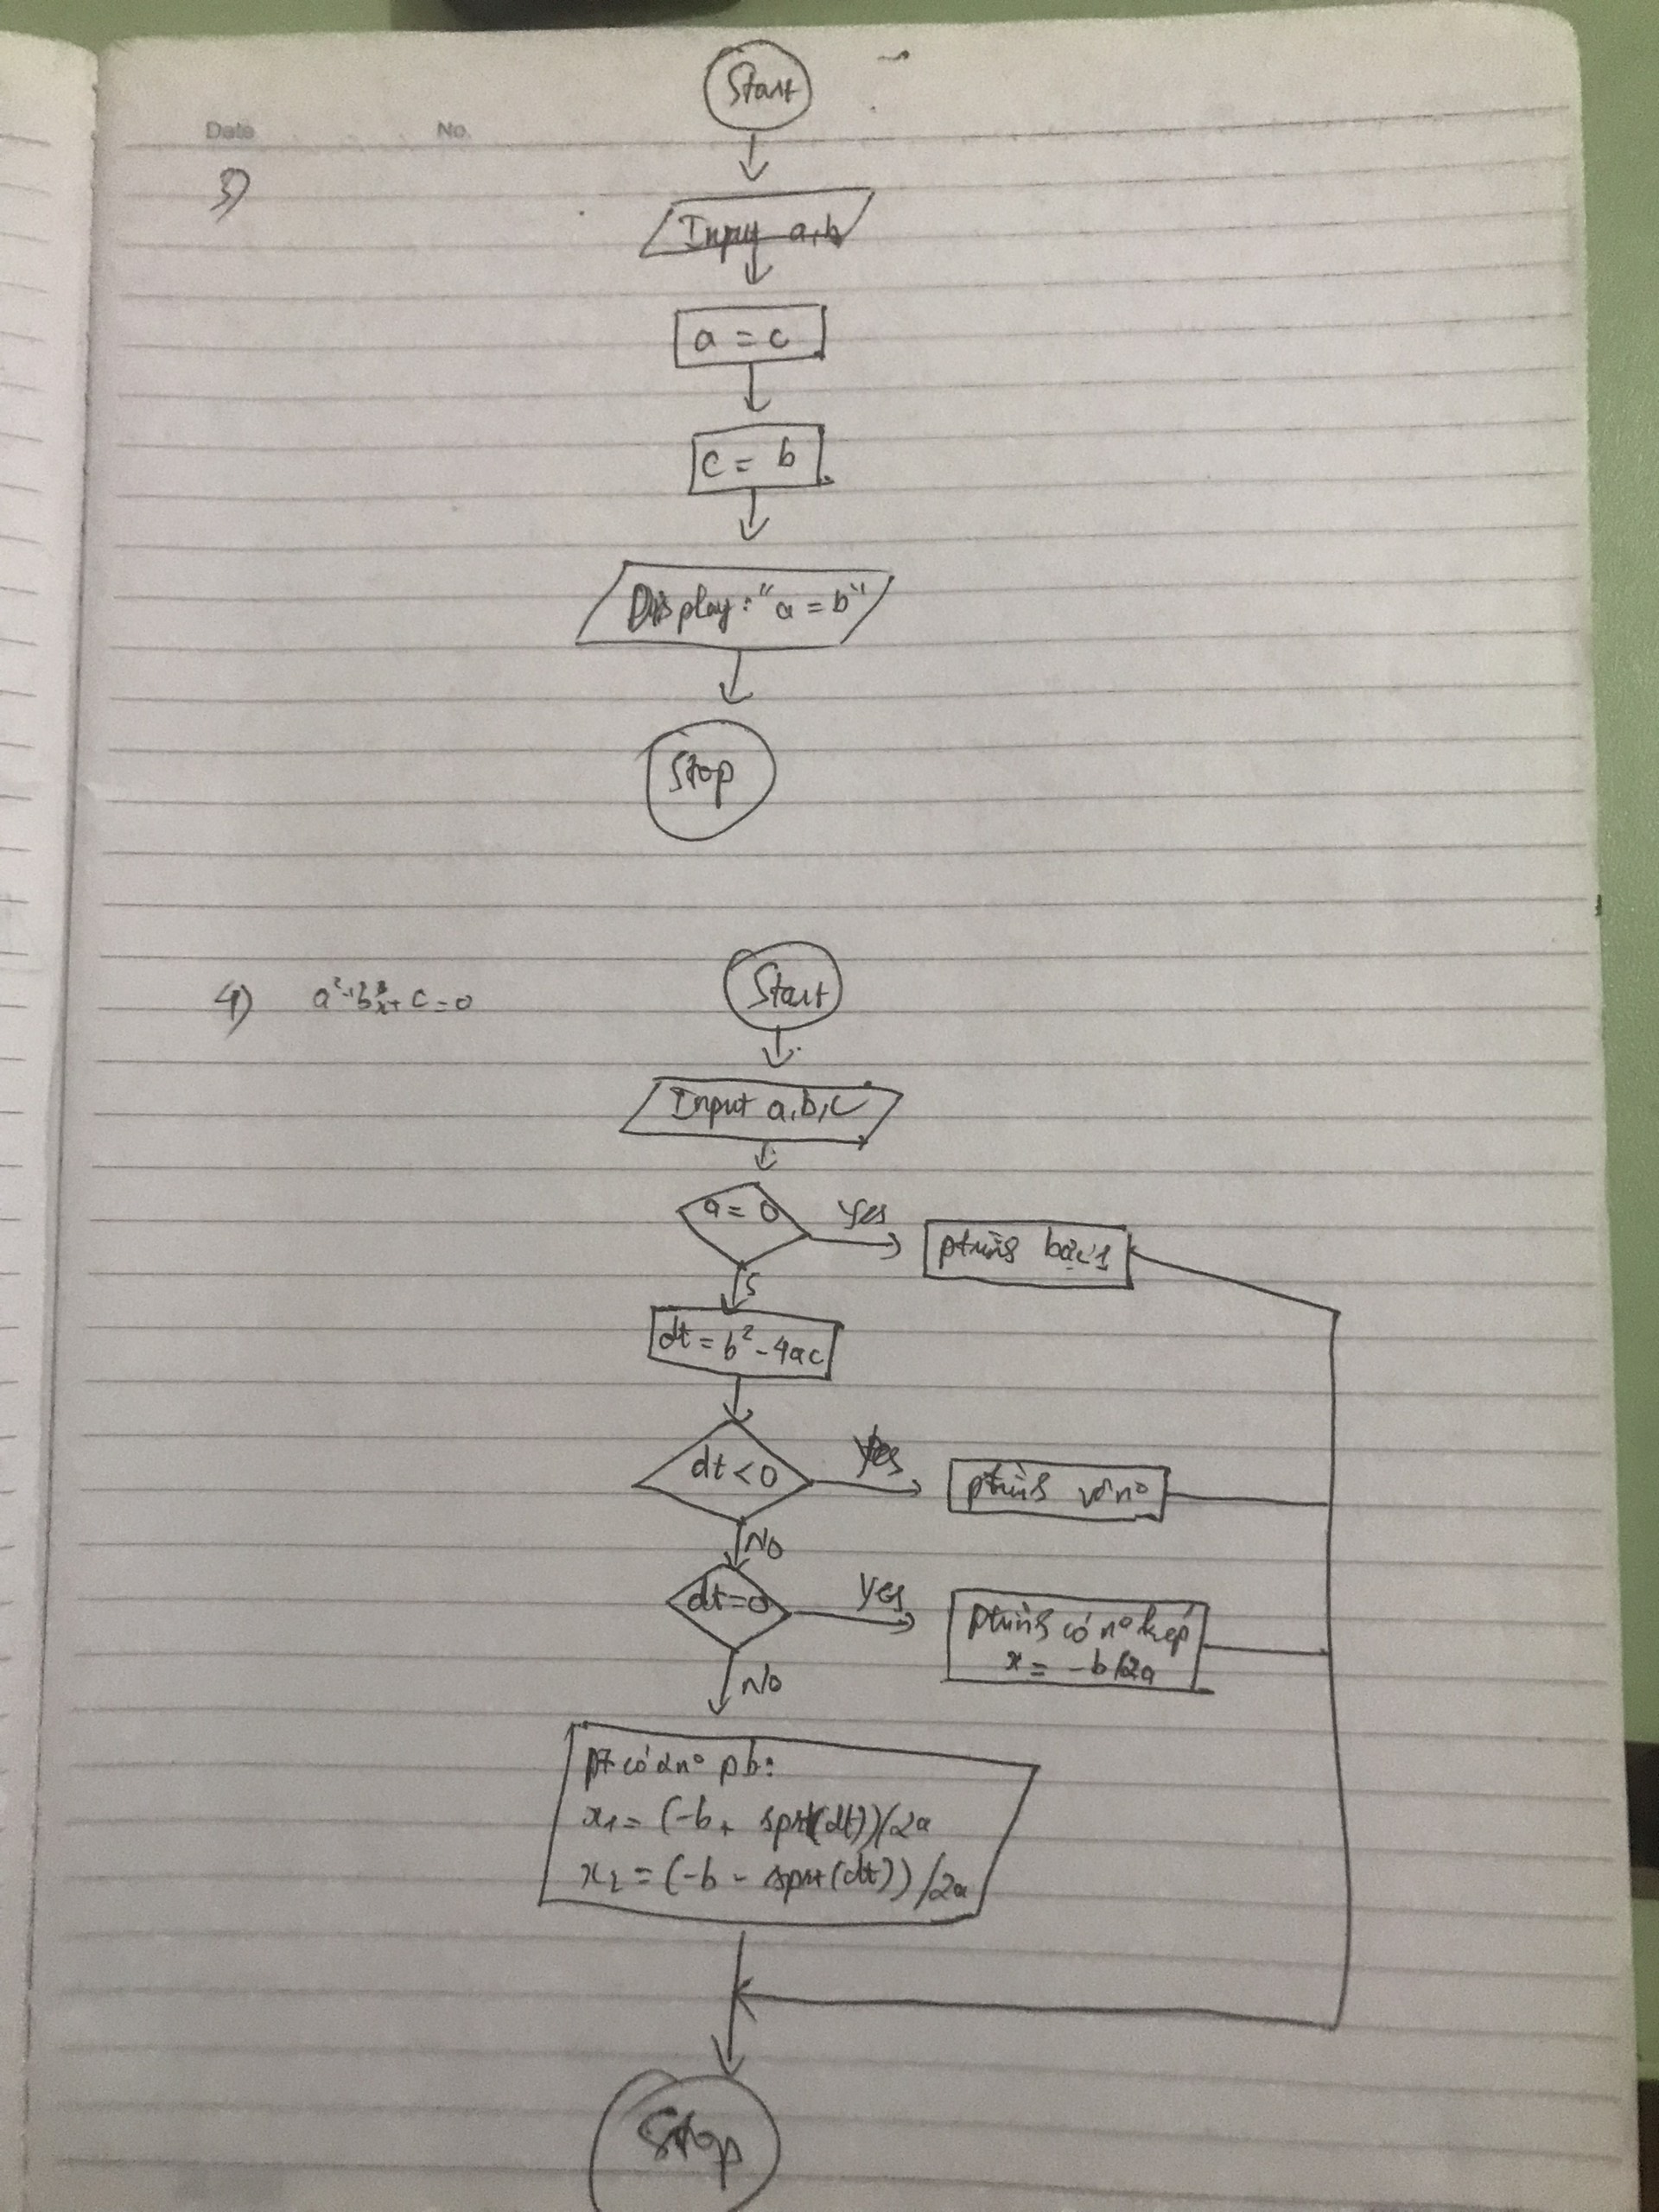 Start
Date No.
3)
Input a,b
a = c
c = b
Display: "a = b"
Stop
4)
Start
Input a,b,c
a = 0
Yes
bậc 1
S
dt = b² - 4ac
dt < 0
Yes
vô no
NO
dt = 0
Yes
có no kép
x = -b/2a
NO
pt có 2 no pb:
x1 = (-b + sprt(dt))/2a
x2 = (-b - sprt(dt))/2a
Stop